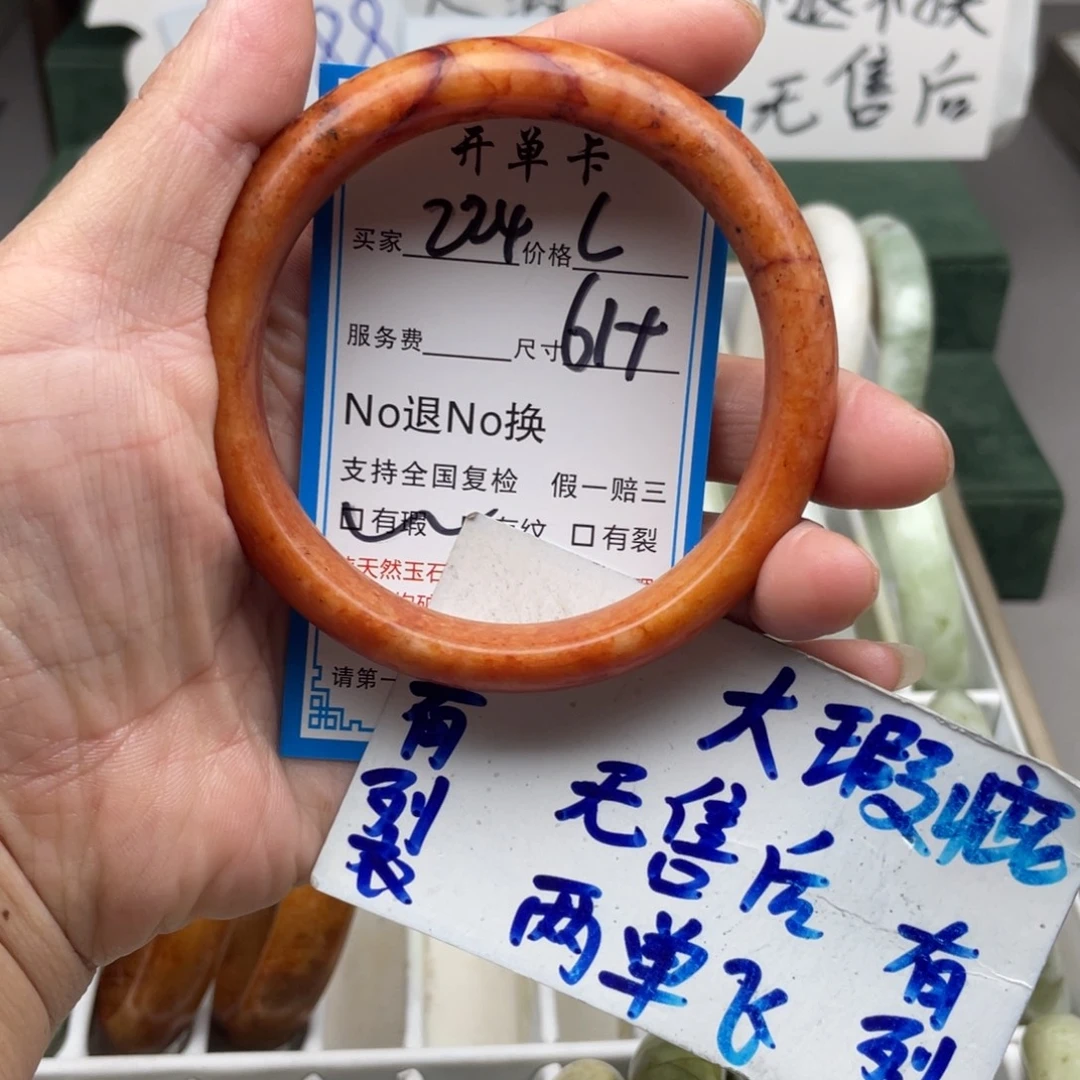 88
退不换
无售后
开单卡
买家 224 价格 L
服务费 尺寸 61+
No退No换
支持全国复检 假一赔三
口有瑕 有纹 口有裂
天然玉石
请第一
有裂
大瑕疵
无售后
两单飞
有裂